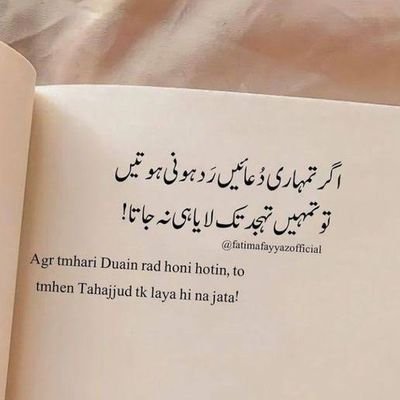 اگر تمہاری دُعائیں رَد ہونی ہوتیں
تو تمہیں تہجد تک لایا ہی نہ جاتا!
@fatimafayyazofficial
Agr tmhari Duain rad honi hotin, to
tmhen Tahajjud tk laya hi na jata!